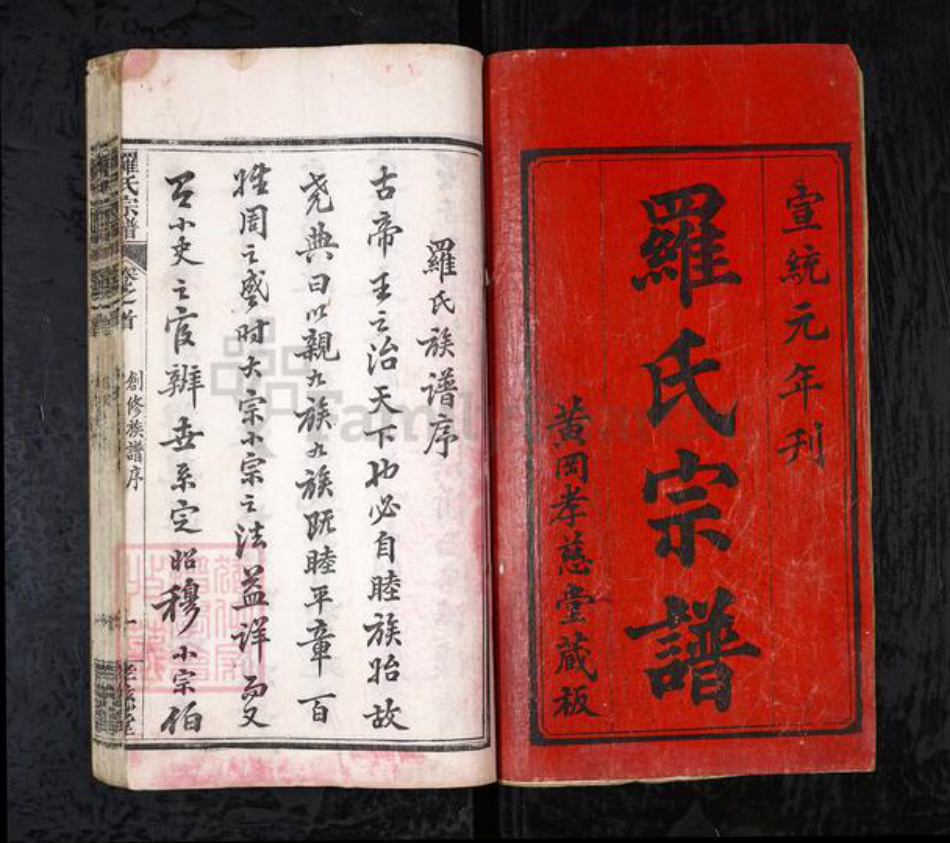 宣統元年刊
羅氏宗譜
黃岡孝慈堂藏板
羅氏族譜序
古帝王之治天下也必自睦族始故
堯典曰以親九族九族既睦平章百
姓周之盛時大宗小宗之法益詳
小史之官辨世系定昭穆小宗伯
羅氏宗譜
卷之首
創修族譜序
一